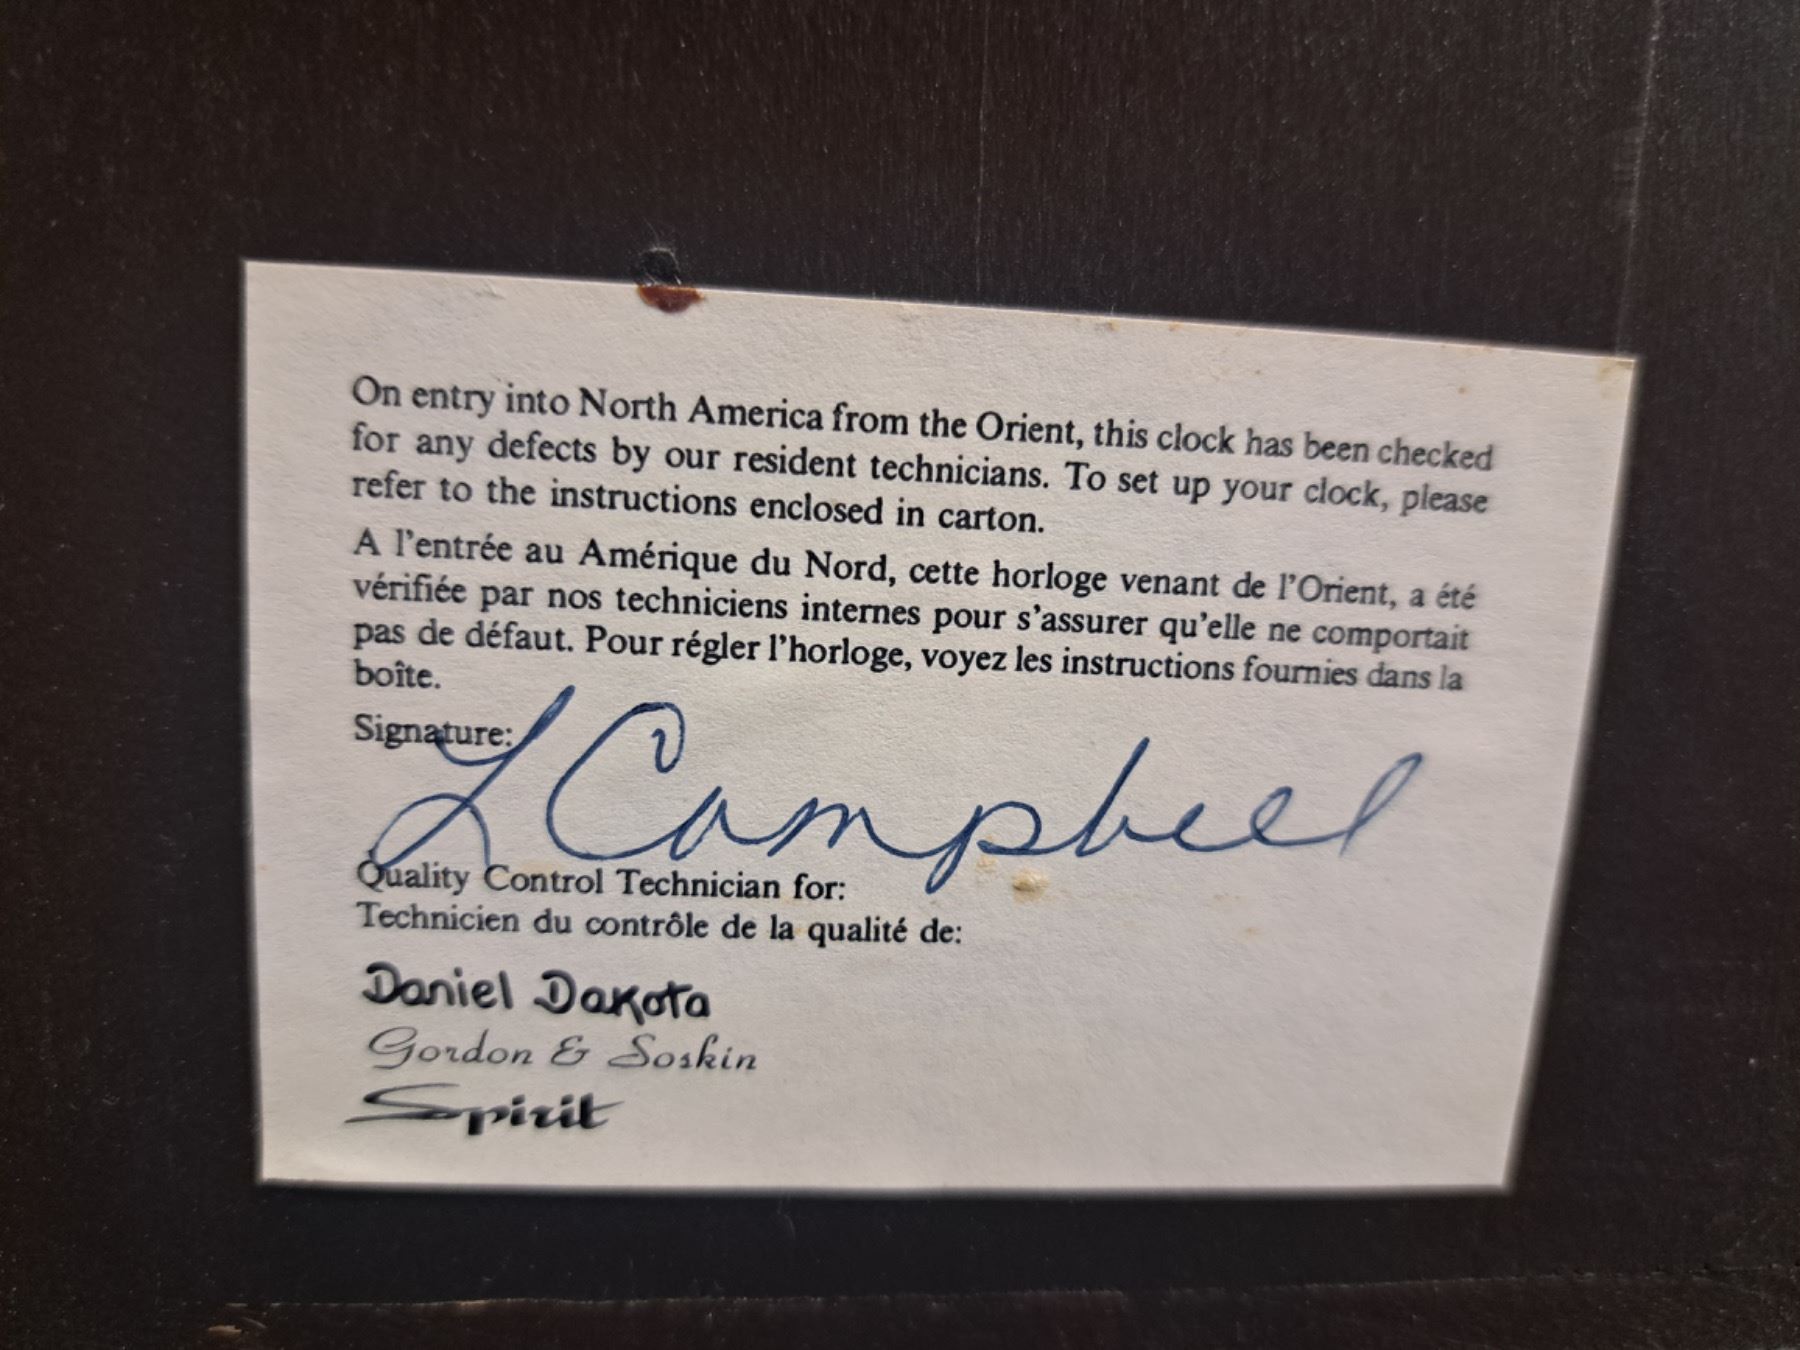 On entry into North America from the Orient, this clock has been checked
for any defects by our resident technicians. To set up your clock, please
refer to the instructions enclosed in carton.
A l'entrée au Amérique du Nord, cette horloge venant de l'Orient, a été
vérifiée par nos techniciens internes pour s'assurer qu'elle ne comportait
pas de défaut. Pour régler l'horloge, voyez les instructions fournies dans la
boîte.
Signature: L Campbell
Quality Control Technician for:
Technicien du contrôle de la qualité de:
Daniel Dakota
Gordon & Soskin
Spirit